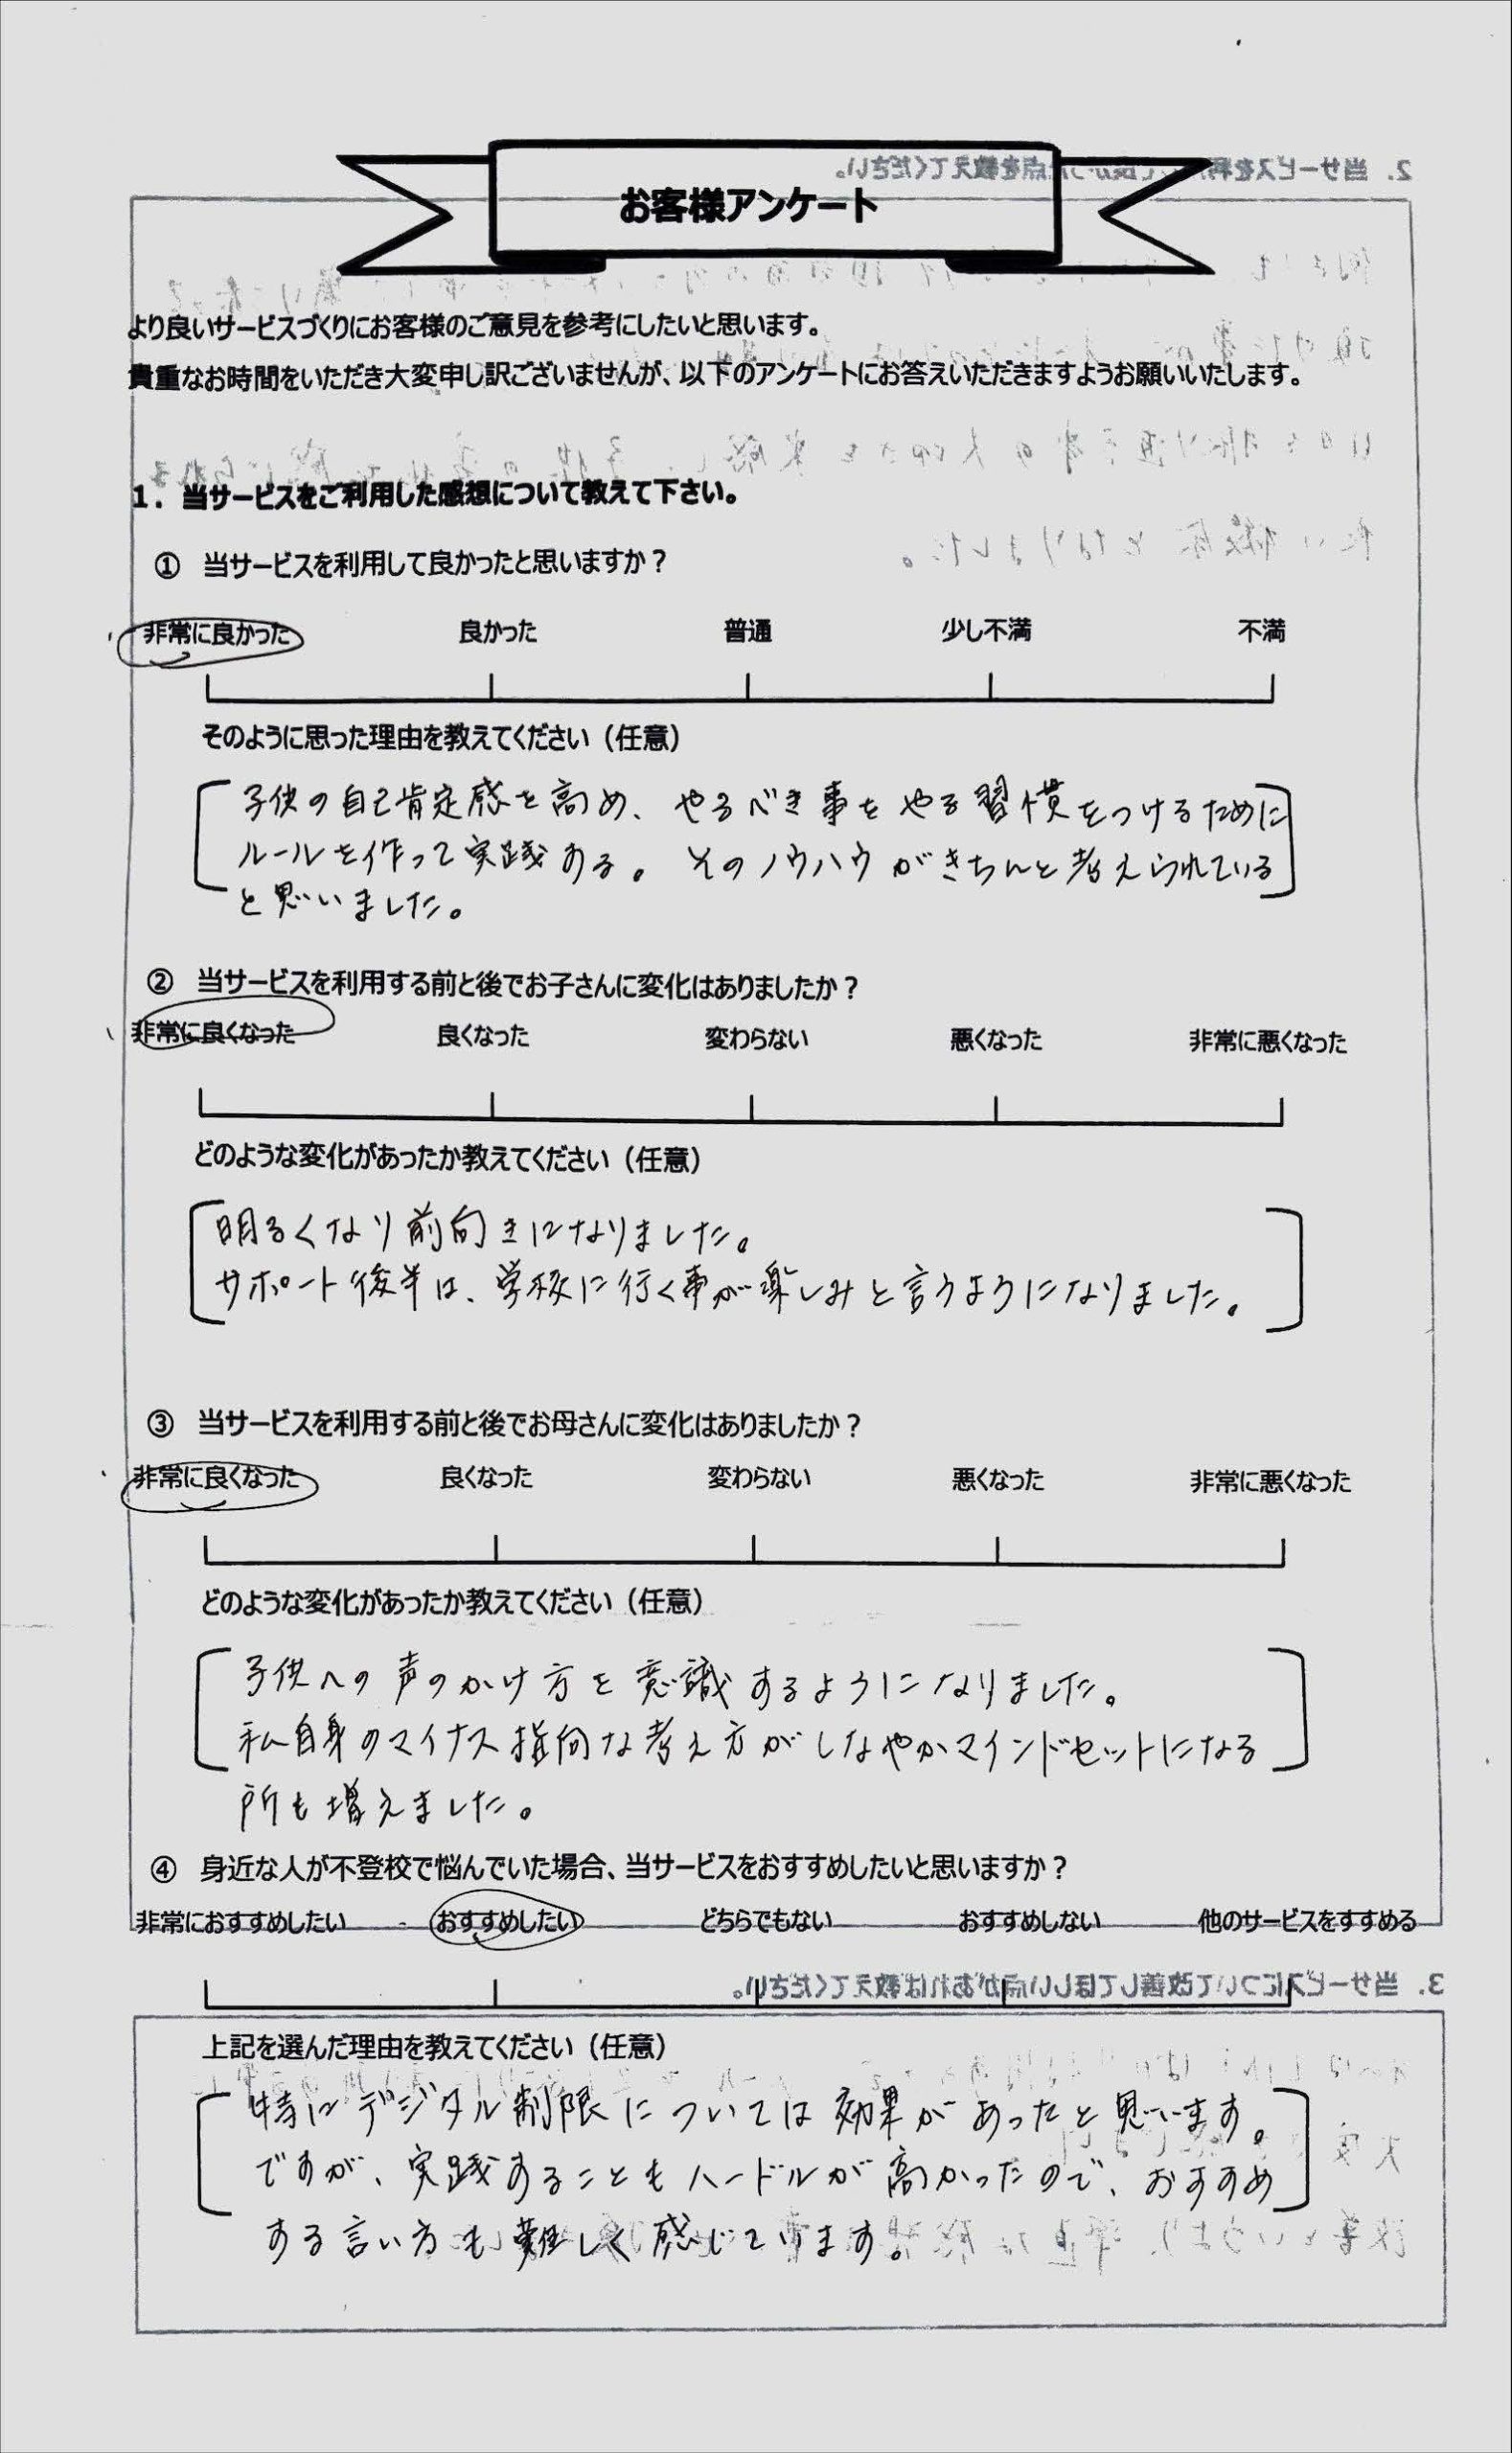 お客様アンケート
より良いサービスづくりにお客様のご意見を参考にしたいと思います。
貴重なお時間をいただき大変申し訳ございませんが、以下のアンケートにお答えいただきますようお願いいたします。
1. 当サービスをご利用した感想について教えて下さい。
① 当サービスを利用して良かったと思いますか？
非常に良かった 良かった 普通 少し不満 不満
そのように思った理由を教えてください（任意）
子供の自己肯定感を高め、やるべき事をやる習慣をつけるために
ルールを作って実践する。そのノウハウがきちんと考えられている
と思いました。
② 当サービスを利用する前と後でお子さんに変化はありましたか？
非常に良くなった 良くなった 変わらない 悪くなった 非常に悪くなった
どのような変化があったか教えてください（任意）
明るくなり前向きになりました。
サポート後半は、学校に行く事が楽しみと言うようになりました。
③ 当サービスを利用する前と後でお母さんに変化はありましたか？
非常に良くなった 良くなった 変わらない 悪くなった 非常に悪くなった
どのような変化があったか教えてください（任意）
子供への声のかけ方を意識するようになりました。
私自身のマイナス指向な考え方がしなやかマインドセットになる
所も増えました。
④ 身近な人が不登校で悩んでいた場合、当サービスをおすすめしたいと思いますか？
非常におすすめしたい おすすめしたい どちらでもない おすすめしない 他のサービスをすすめる
3. 当サービスについて改善してほしい点があれば教えてください。
上記を選んだ理由を教えてください（任意）
特にデジタル制限については効果があったと思います。
ですが、実践することもハードルが高かったので、おすすめ
する言い方も難しく感じています。